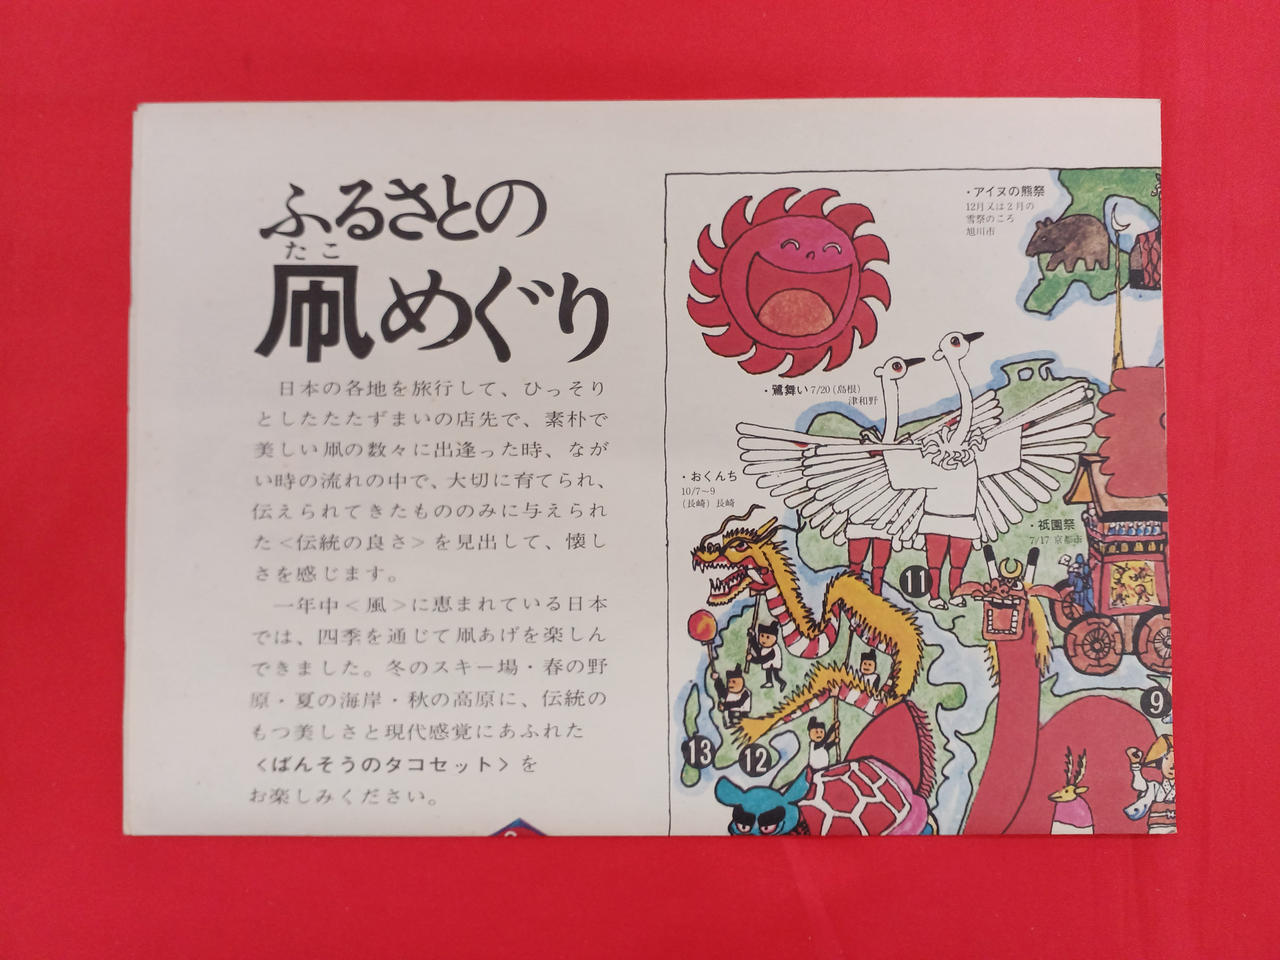 ふるさとの
たこ
凧めぐり
日本の各地を旅行して、ひっそり
としたたたずまいの店先で、素朴で
美しい凧の数々に出逢った時、なが
い時の流れの中で、大切に育てられ、
伝えられてきたもののみに与えられ
た<伝統の良さ>を見出して、懐し
さを感じます。
一年中<風>に恵まれている日本
では、四季を通じて凧あげを楽しん
できました。冬のスキー場・春の野
原・夏の海岸・秋の高原に、伝統の
もつ美しさと現代感覚にあふれた
<ばんそうのタコセット>を
お楽しみください。
・アイヌの熊祭
12月又は2月の
雪祭のころ
旭川市
・鷺舞い 7/20(島根)
津和野
・おくんち
10/7〜9
(長崎) 長崎
・祇園祭
7/17 京都市
11
9
13
12